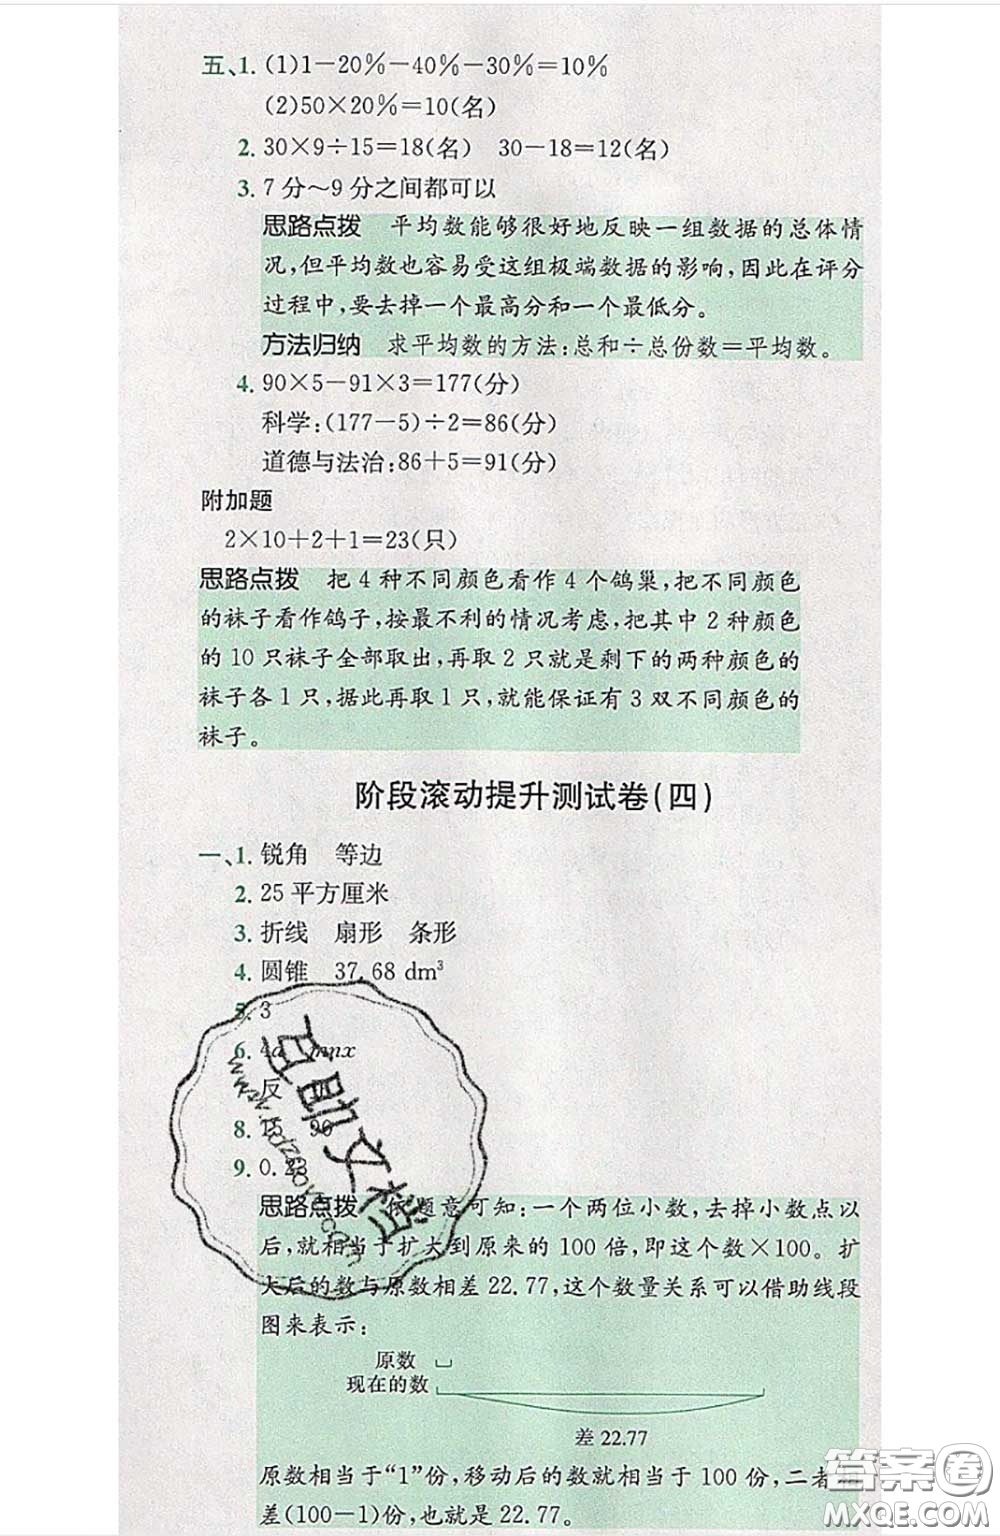 五、1. (1)1－20％－40％－30％＝10％
(2)50×20％＝10(名)
2. 30×9÷15＝18(名)　30－18＝12(名)
3. 7 分～9 分之间都可以
思路点拨　平均数能够很好地反映一组数据的总体情
况,但平均数也容易受这组极端数据的影响,因此在评分
过程中,要去掉一个最高分和一个最低分。
方法归纳　求平均数的方法:总和÷总份数＝平均数。
4. 90×5－91×3＝177(分)
科学:(177－5)÷2＝86(分)
道德与法治:86＋5＝91(分)
附加题
2×10＋2＋1＝23(只)
思路点拨　把 4 种不同颜色看作 4 个鸽巢,把不同颜色
的袜子看作鸽子,按最不利的情况考虑,把其中 2 种颜色
的 10 只袜子全部取出,再取 2 只就是剩下的两种颜色的
袜子各 1 只,据此再取 1 只,就能保证有 3 双不同颜色的
袜子。
阶段滚动提升测试卷(四)
一、1. 锐角　等边
2. 25 平方厘米
3. 折线　扇形　条形
4. 圆锥　37.68 dm³
5. 3
6. 4a　mnx
反
8. 15
9. 0.23
思路点拨　题意可知:一个两位小数,去掉小数点以
后,就相当于扩大到原来的 100 倍,即这个数×100。扩
大后的数与原数相差 22.77,这个数量关系可以借助线段
图来表示:
原数
现在的数
差 22.77
原数相当于“1”份,移动后的数就相当于 100 份,二者相
差(100－1)份,也就是 22.77。
百郎文档
答案圈
MXQE.COM